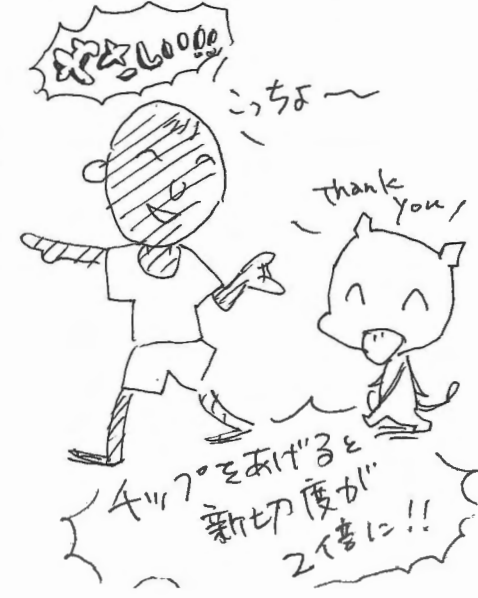 やさしい!!!
こっちょ〜
thank
you!
チップをあげると
新切度が
2倍に!!